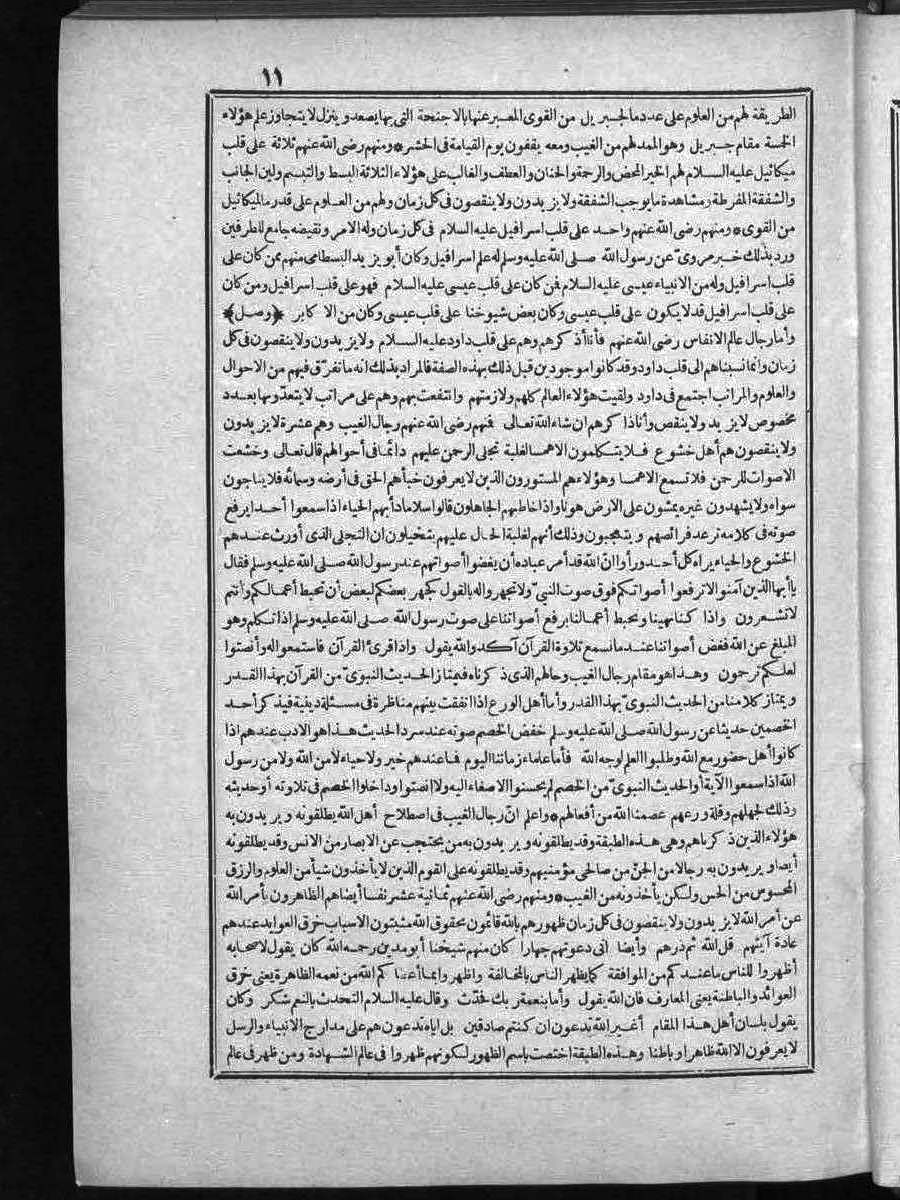 ١١
الطريقة لهم من العلوم على عدد ما لجبريل من القوى المعبر عنها بالاجنحة التى بها يصعد وينزل لا يتجاوز علم هؤلاء
الخمسة مقام جبريل وهو الممد لهم من الغيب ومعه يقفون يوم القيامة فى الحشر * ومنهم رضى الله عنهم ثلاثة على قلب
ميكائيل عليه السلام لهم الخير المحض والرحمة والحنان والعطف والغالب على هؤلاء الثلاثة البسط والتبسم ولين الجانب
والشفقة المفرطة ومشاهدة ما يوجب الشفقة ولا يزيدون ولا ينقصون فى كل زمان ولهم من العلوم على قدر ما لميكائيل
من القوى * ومنهم رضى الله عنهم واحد على قلب اسرافيل عليه السلام فى كل زمان وله الامر ونقيضه جامع للطرفين
ورد بذلك خبر مروىّ عن رسول الله صلى الله عليه وسلم له علم اسرافيل وكان أبو يزيد البسطامى منهم ممن كان على
قلب اسرافيل وله من الانبياء عيسى عليه السلام فمن كان على قلب عيسى عليه السلام فهو على قلب اسرافيل ومن كان
على قلب اسرافيل قد لا يكون على قلب عيسى وكان بعض شيوخنا على قلب عيسى وكان من الاكابر ﴿وصل﴾
وأما رجال عالم الانفاس رضى الله عنهم فأنا أذكرهم وهم على قلب داود عليه السلام ولا يزيدون ولا ينقصون فى كل
زمان وانما نسبناهم الى قلب داود وقد كانوا موجودين قبل ذلك بهذه الصفة فالمراد بذلك انه ما تفرّق فيهم من الاحوال
والعلوم والمراتب اجتمع فى داود ولقيت هؤلاء العالم كلهم ولازمتهم وانتفعت بهم وهم على مراتب لا يتعدّونها بعدد
مخصوص لا يزيد ولا ينقص وأنا اذكرهم ان شاء الله تعالى فمنهم رضى الله عنهم رجال الغيب وهم عشرة لا يزيدون
ولا ينقصون هم أهل خشوع فلا يتكلمون الا همسا لغلبة تجلى الرحمن عليهم دائما فى أحوالهم قال تعالى وخشعت
الاصوات للرحمن فلا تسمع الا همسا وهؤلاء هم المستورون الذين لا يعرفون خبأهم الحق فى أرضه وسمائه فلا يناجون
سواه ولا يشهدون غيره يمشون على الارض هونا واذا خاطبهم الجاهلون قالوا سلاما دأبهم الحياء اذا سمعوا أحدا يرفع
صوته فى كلامه ترعد فرائصهم ويتعجبون وذلك أنهم لغلبة الحال عليهم يتخيلون ان التجلى الذى أورث عندهم
الخشوع والحياء يراه كل أحد ورأوا انّ الله قد أمر عباده أن يغضوا أصواتهم عند رسول الله صلى الله عليه وسلم فقال
يا أيها الذين آمنوا لا ترفعوا أصواتكم فوق صوت النبىّ ولا تجهروا له بالقول كجهر بعضكم لبعض أن تحبط أعمالكم وأنتم
لا تشعرون واذا كنا نهينا وتحبط أعمالنا برفع أصواتنا على صوت رسول الله صلى الله عليه وسلم اذا تكلم وهو
المبلغ عن الله فغض أصواتنا عند ما نسمع تلاوة القرآن آكد والله يقول واذا قرئ القرآن فاستمعوا له وأنصتوا
لعلكم ترحمون وهذا هو مقام رجال الغيب وحالهم الذى ذكرناه فيمتاز الحديث النبوىّ من القرآن بهذا القدر
ويمتاز كلامنا من الحديث النبوىّ بهذا القدر وأما أهل الورع اذا اتفقت بينهم مناظرة فى مسئلة دينية فيذكر أحد
الخصمين حديثا عن رسول الله صلى الله عليه وسلم خفض الخصم صوته عند سرد الحديث هذا هو الادب عندهم اذا
كانوا أهل حضور مع الله وطلبوا العلم لوجه الله فأما علماء زماننا اليوم فما عندهم خير ولا حياء لا من الله ولا من رسول
الله اذا سمعوا الآية أو الحديث النبوىّ من الخصم لم يحسنوا الاصغاء اليه ولا انصتوا وداخلوا الخصم فى تلاوته أو حديثه
وذلك لجهلهم وقلة ورعهم عصمنا الله من أفعالهم * واعلم انّ رجال الغيب فى اصطلاح أهل الله يطلقونه ويريدون به
هؤلاء الذين ذكرناهم وهى هذه الطبقة وقد يطلقونه ويريدون به من يحتجب عن الابصار من الانس وقد يطلقونه
أيضا ويريدون به رجالا من الجنّ من صالحى مؤمنيهم وقد يطلقونه على القوم الذين لا يأخذون شيأ من العلوم والرزق
المحسوس من الحس ولكن يأخذونه من الغيب * ومنهم رضى الله عنهم ثمانية عشر نفسا أيضا هم الظاهرون بأمر الله
عن أمر الله لا يزيدون ولا ينقصون فى كل زمان ظهورهم بالله قائمون بحقوق الله مثبتون الاسباب خرق العوائد عندهم
عادة آيتهم قل الله ثم ذرهم وأيضا انى دعوتهم جهارا كان منهم شيخنا أبو مدين رحمه الله كان يقول لاصحابه
أظهروا للناس ما عندكم من الموافقة كما يظهر الناس بالمخالفة واظهروا بما أعطاكم الله من نعمه الظاهرة يعنى خرق
العوائد والباطنة يعنى المعارف فان الله يقول وأما بنعمة ربك فحدّث وقال عليه السلام التحدث بالنعم شكر وكان
يقول بلسان أهل هذا المقام أغير الله تدعون ان كنتم صادقين بل اياه تدعون هم على مدارج الانبياء والرسل
لا يعرفون الا الله ظاهرا وباطنا وهذه الطبقة اختصت باسم الظهور لكونهم ظهروا فى عالم الشهادة ومن ظهر فى عالم